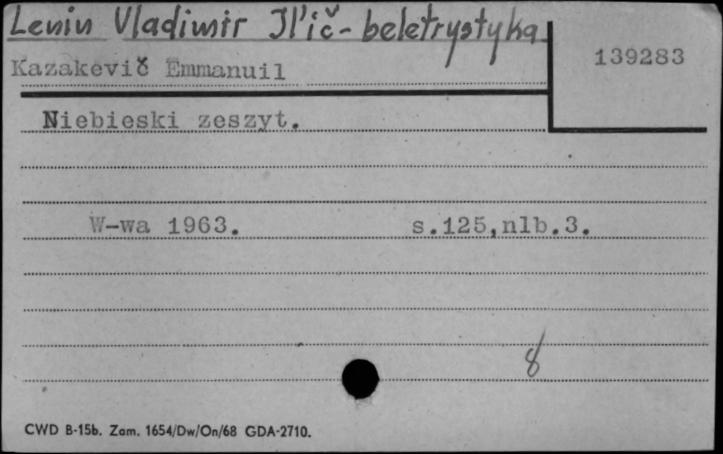 Lenin Vladimir Il'ič - beletrystyka
139283
Kazakevič Emmanuil
Niebieski zeszyt.
W-wa 1963. s.125,nlb.3.
8
CWD B-15b. Zam. 1654/Dw/On/68 GDA-2710.